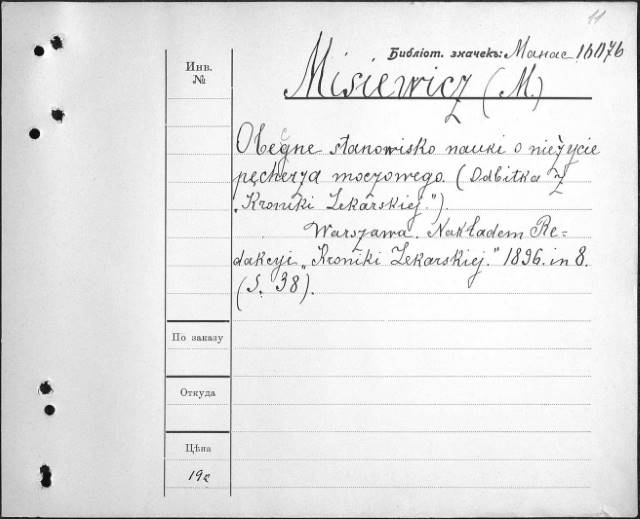 11
Библіот. значекъ: Манас. 16076
Инв.
№
Misiewicz (M.)
Obecne stanowisko nauki o nieżycie
pęcherza moczowego. (Odbitka z
„Kroniki Lekarskiej.").
Warszawa. Nakładem Re-
dakcyi „Kroniki Lekarskiej." 1896. in 8.
(S. 38).
По заказу
Откуда
Цѣна